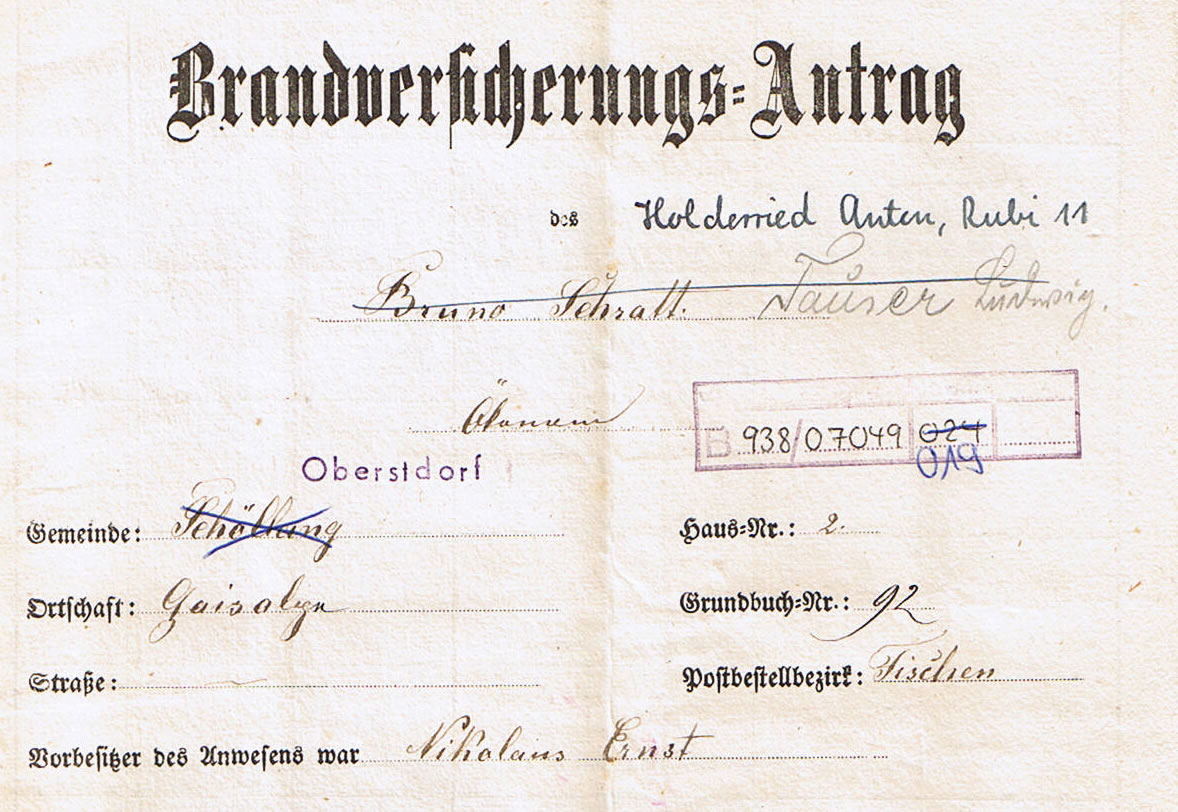 Brandversicherungs-Antrag
des Holderried Anton, Rubi 11
Bruno Schratt. Tauser Ludwig.
Ökonom
B 938/07049 024
019
Oberstdorf
Gemeinde: Schöllang Haus-Nr.: 2.
Ortschaft: Gaisalpe Grundbuch-Nr.: 92
Straße: Postbestellbezirk: Fischen
Vorbesitzer des Anwesens war Nikolaus Ernst